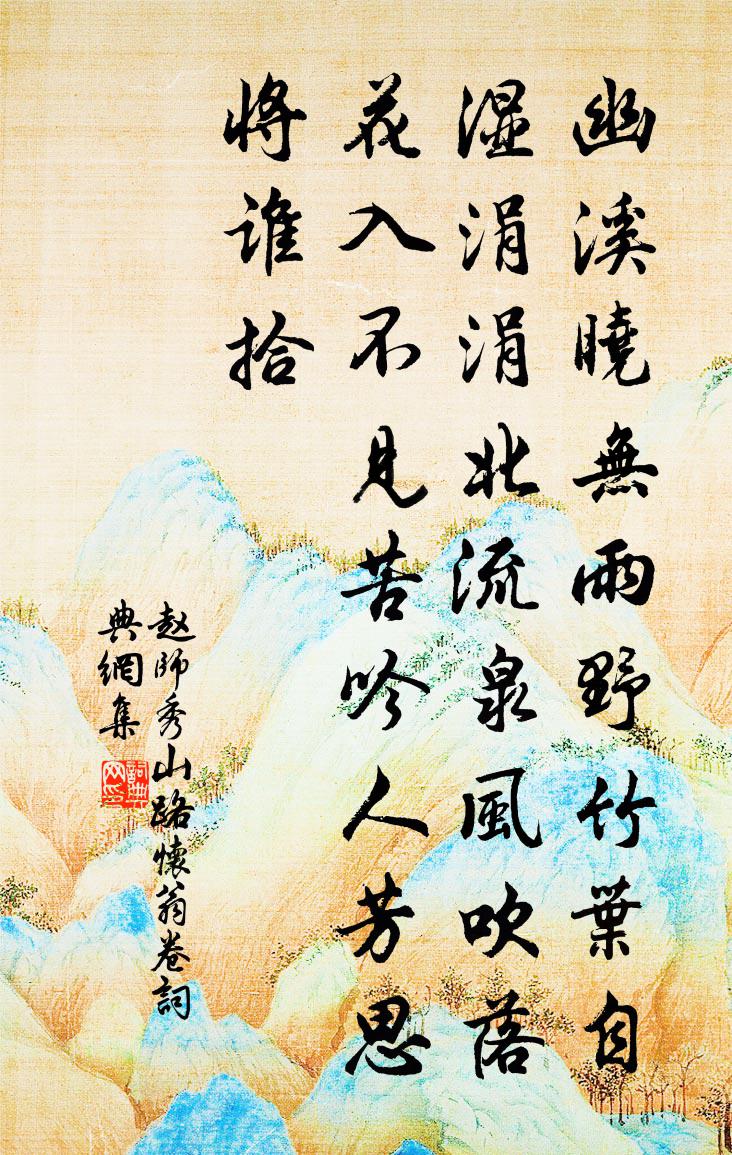 幽溪曉無雨野竹葉自
湿涓涓北流泉風吹落
花入不見苦吟人芳思
將誰拾
赵師秀山路懷翁卷詞
典網集
詞典
网印